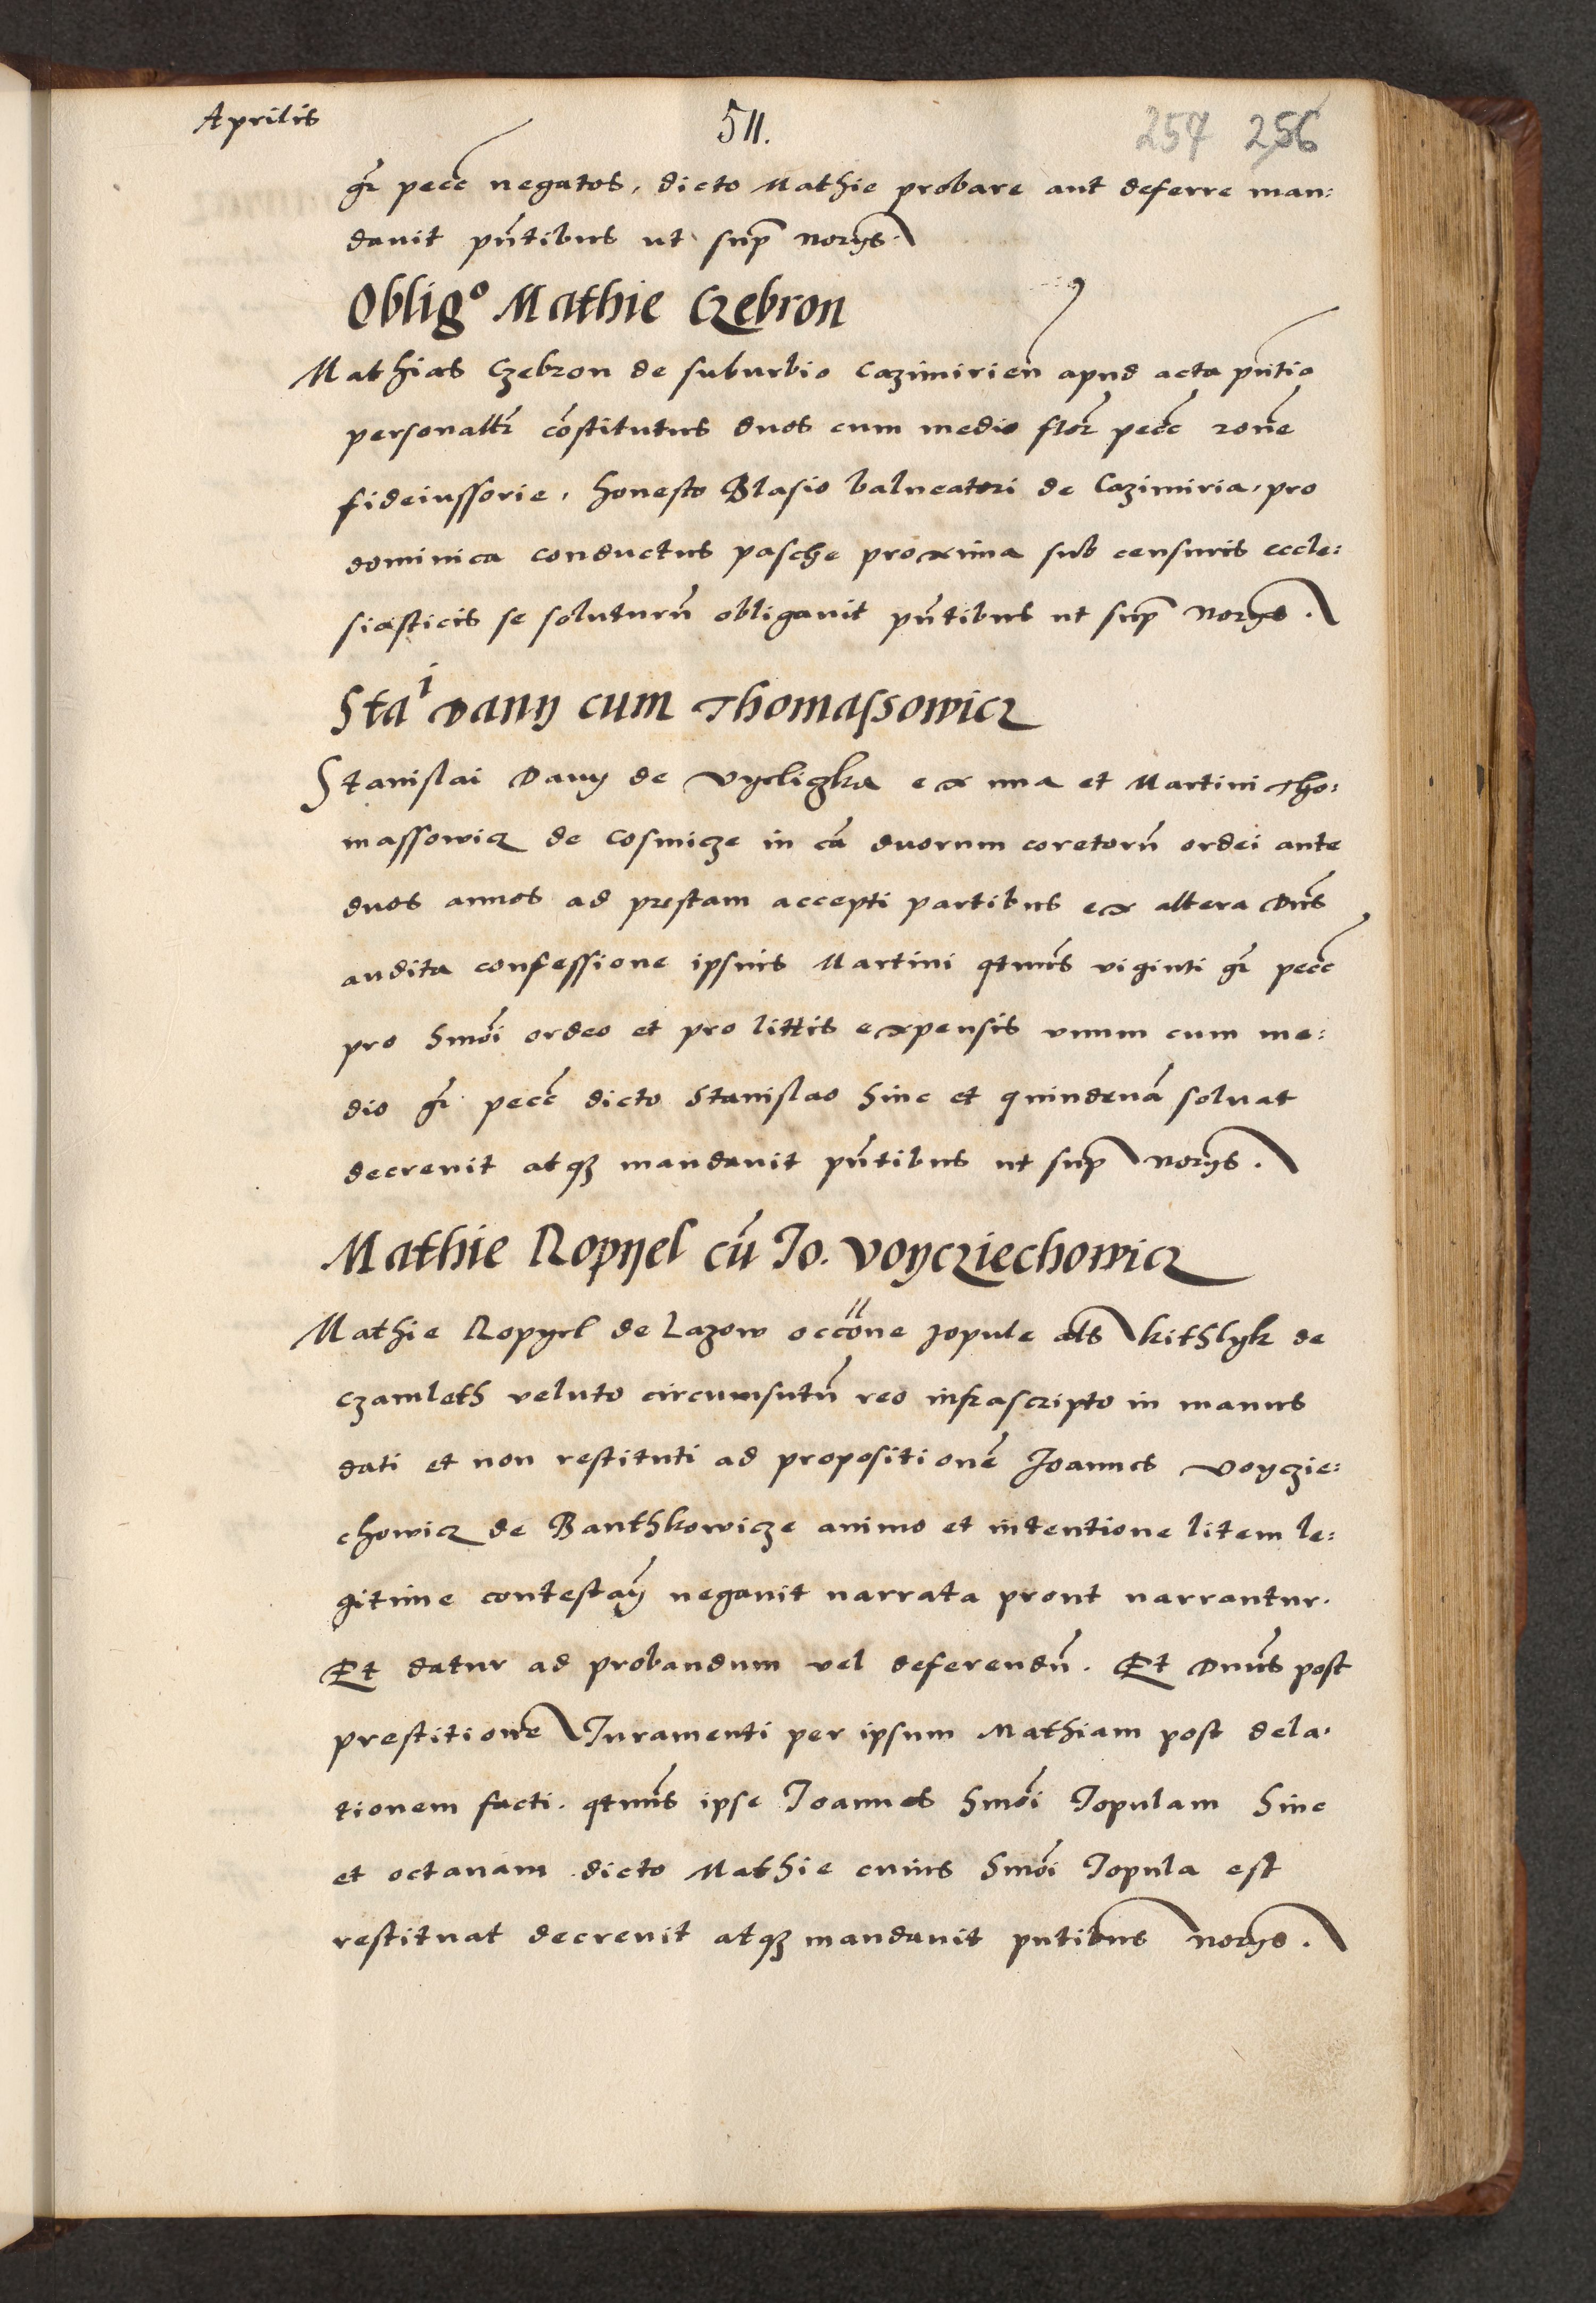 Aprilis
511.
254 256
gr̃ pecc̃ negatos, dicto Mathie probare aut deferre man:
davit pñtibus ut sup̃ norys.
Oblig° Mathie Czebron
Mathias Czebron de suburbio Cazimirien̄ apud acta pñtia
personalr̃ cōstitutus duos cum medio flor̃ pecc̃ rōne
fideiussorie, honesto Blasio balneatori de Cazimiria, pro
dominica conductus pasche proxima sub censuris eccle:
siasticis se soluturū obligavit pñtibus ut sup̃ norys.
Staⁱ Dany cum Thomassowicz
Stanislai Dany de Vyeligka ex una et Martini Tho:
massowicz de Cosmicze in cā duorum coretorū ordei ante
duos annos ad prestam accepti partibus ex altera Dn̄s
audita confessione ipsius Martini qtinus viginti gr̃ pecc̃
pro hmōi ordeo et pro littis expensis unum cum me:
dio gr̃ pecc̃ dicto Stanislao hinc et quindenā soluat
decrevit atqꝫ mandavit pñtibus ut sup̃ norys.
Mathie Ropyel cū Jo. Voycziechowicz
Mathie Ropyel de Lazow occōne jopule als kithlyk de
czamleth veluto circumsutū reo infrascripto in manus
dati et non restituti ad propositionē Joannes Voyczie:
chowicz de Banthkowicze animo et intentione litem le:
gitime contestaň negavit narrata prout narrantur.
Et datur ad probandum vel deferendū. Et Dnūs post
prestitionē Juramenti per ipsum Mathiam post dela:
tionem facti. qtinus ipse Joannes hmōi Jopulam hinc
et octavam dicto Mathie cuius hmōi Jopula est
restituat decrevit atqꝫ mandavit pntibus norys.